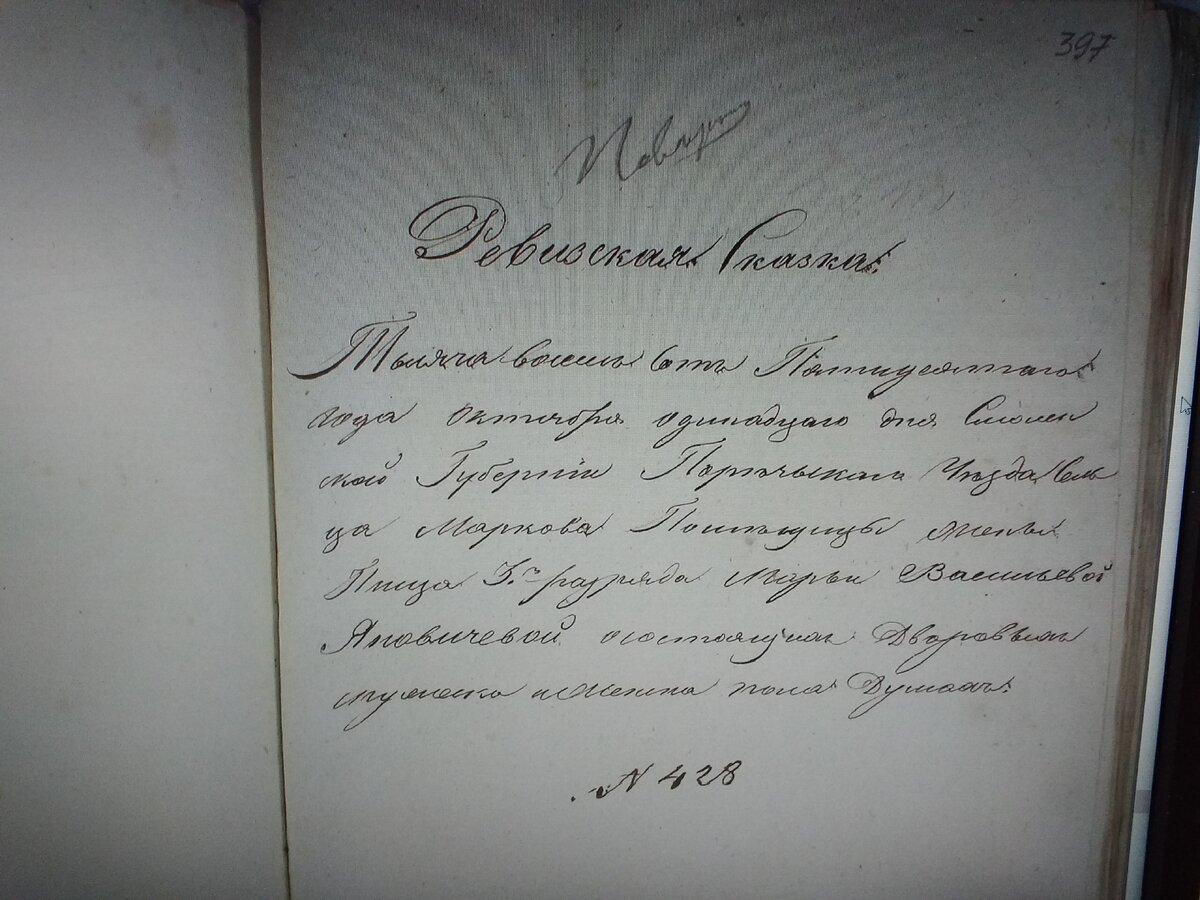 397
Ревизская Сказка.
Тысяча восемь сотъ Пятидесятаго
года октября одинадцаго дня Смолен
ской Губернїи Порѣчьскаго Уѣзда Сель
ца Маркова Помѣщицы жены
Писца 3.го разряда Марьи Васильевой
Яновичевой о состоящихъ Дворовыхъ
мужеска и женска пола Душахъ:
N 428